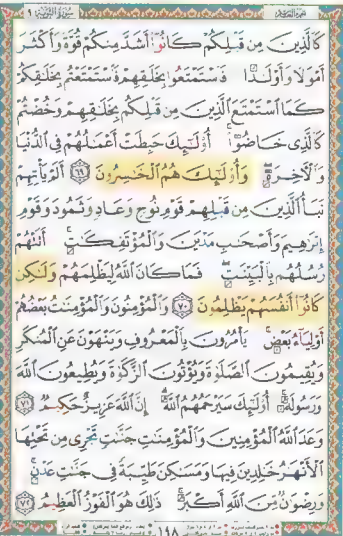 سورة التوبة ٩
كَالَّذِينَ مِن قَبْلِكُمْ كَانُوٓا۟ أَشَدَّ مِنكُمْ قُوَّةً وَأَكْثَرَ
أَمْوَٰلًا وَأَوْلَٰدًا فَٱسْتَمْتَعُوا۟ بِخَلَٰقِهِمْ فَٱسْتَمْتَعْتُم بِخَلَٰقِكُمْ
كَمَا ٱسْتَمْتَعَ ٱلَّذِينَ مِن قَبْلِكُم بِخَلَٰقِهِمْ وَخُضْتُمْ
كَٱلَّذِى خَاضُوٓا۟ أُو۟لَٰٓئِكَ حَبِطَتْ أَعْمَٰلُهُمْ فِى ٱلدُّنْيَا
وَٱلْءَاخِرَةِ وَأُو۟لَٰٓئِكَ هُمُ ٱلْخَٰسِرُونَ ٦٩ أَلَمْ يَأْتِهِمْ
نَبَأُ ٱلَّذِينَ مِن قَبْلِهِمْ قَوْمِ نُوحٍ وَعَادٍ وَثَمُودَ وَقَوْمِ
إِبْرَٰهِيمَ وَأَصْحَٰبِ مَدْيَنَ وَٱلْمُؤْتَفِكَٰتِ أَتَتْهُمْ
رُسُلُهُم بِٱلْبَيِّنَٰتِ فَمَا كَانَ ٱللَّهُ لِيَظْلِمَهُمْ وَلَٰكِن
كَانُوٓا۟ أَنفُسَهُمْ يَظْلِمُونَ ٧٠ وَٱلْمُؤْمِنُونَ وَٱلْمُؤْمِنَٰتُ بَعْضُهُمْ
أَوْلِيَآءُ بَعْضٍ يَأْمُرُونَ بِٱلْمَعْرُوفِ وَيَنْهَوْنَ عَنِ ٱلْمُنكَرِ
وَيُقِيمُونَ ٱلصَّلَوٰةَ وَيُؤْتُونَ ٱلزَّكَوٰةَ وَيُطِيعُونَ ٱللَّهَ
وَرَسُولَهُۥٓ أُو۟لَٰٓئِكَ سَيَرْحَمُهُمُ ٱللَّهُ إِنَّ ٱللَّهَ عَزِيزٌ حَكِيمٌ ٧١
وَعَدَ ٱللَّهُ ٱلْمُؤْمِنِينَ وَٱلْمُؤْمِنَٰتِ جَنَّٰتٍ تَجْرِى مِن تَحْتِهَا
ٱلْأَنْهَٰرُ خَٰلِدِينَ فِيهَا وَمَسَٰكِنَ طَيِّبَةً فِى جَنَّٰتِ عَدْنٍ
وَرِضْوَٰنٌ مِّنَ ٱللَّهِ أَكْبَرُ ذَٰلِكَ هُوَ ٱلْفَوْزُ ٱلْعَظِيمُ ٧٢
١٩٨